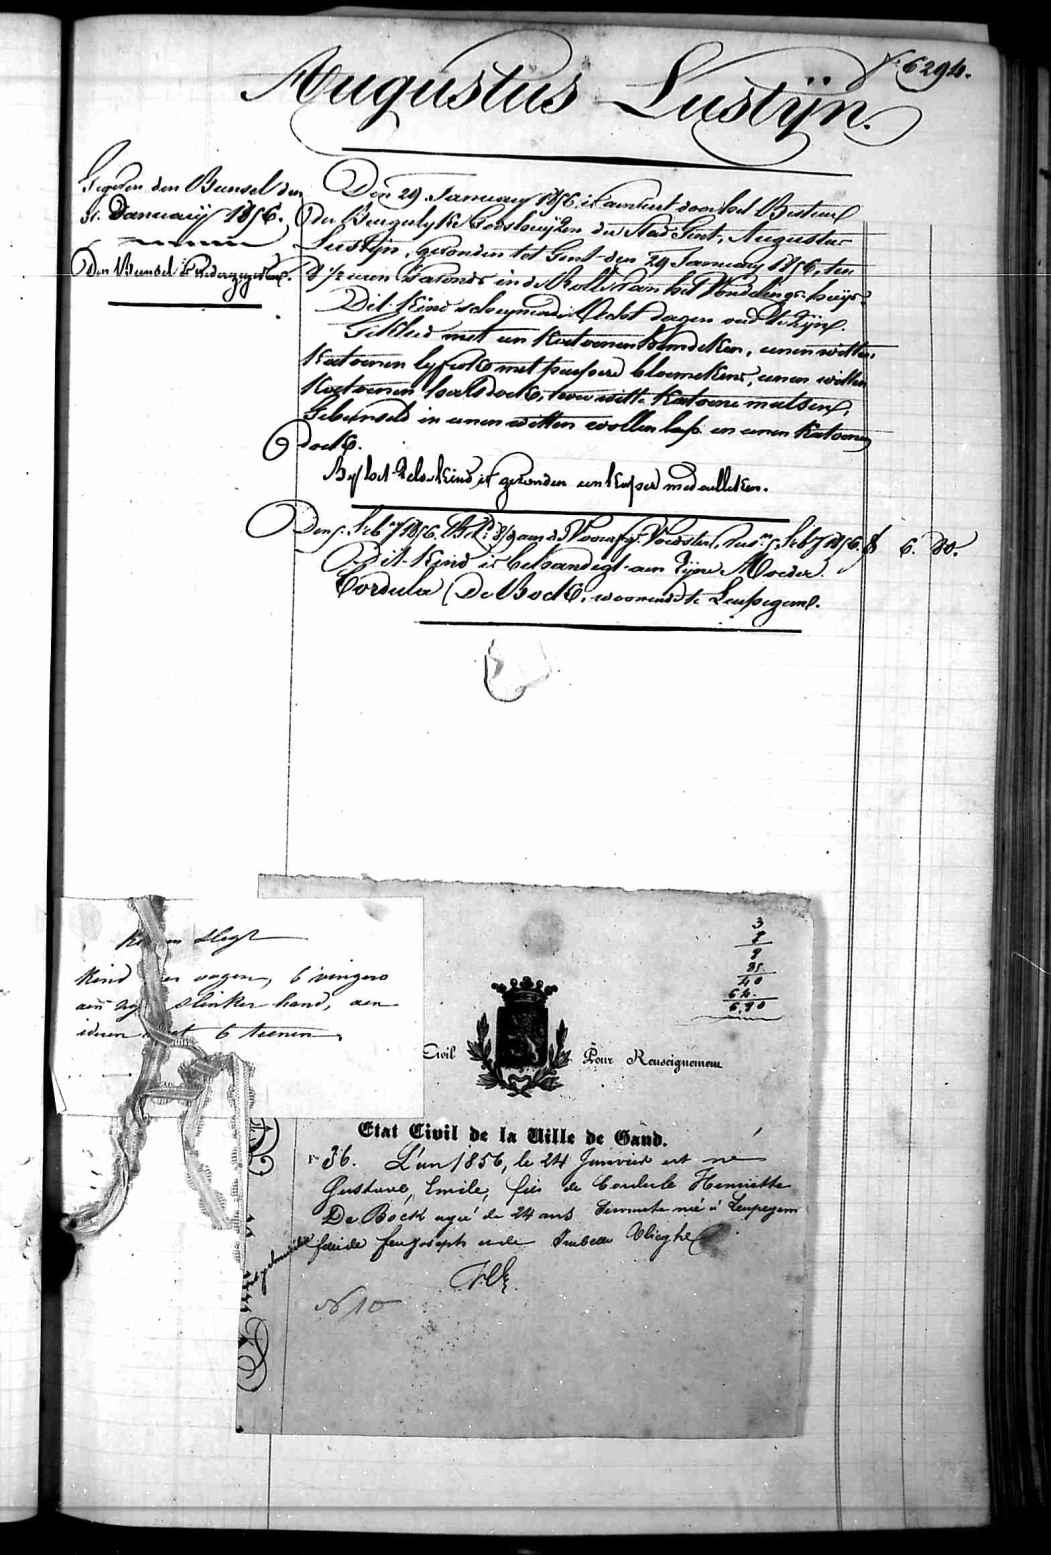 N.º 6294.
Augustus Lustÿn.
Gegeven den Bunsel den
31. Januarÿ 1856.
Den Bunsel is wedergegeven.
Den 29 Januarÿ 1856, is aenveert door het Bestuer
der Burgerlyke Godshuÿzen der Stad Gent, Augustus
Lustÿn, gevonden tot Gent den 29 Januarÿ 1856, ten
uren s'avonds in de Rolle van het Vondelings-huÿs.
Dit Kind scheynende acht dagen oud te zÿn.
Gekleed met een Katoenen hemdeken, eenen witten
Katoenen lyfrok met purpere bloemekens, eenen witten
Katoenen halsdoek, twee witte Katoene mutsen,
Gebunseld in eenen witten wollen lap en eenen Katoenen
doek.
By het zelve kind is gevonden een koper medailleken.
Den 5. Feb.ʸ 1856. 1856. 6. 80.
Dit Kind is behandigt aen zÿne Moeder
Cordula De Bock, woonende te Leupegem.
slegt
Kind oogen, 6 vingers
aen slinker hand, aen
iederen 6 teenen
3
8
9
35
40
64.
6.90
Civil Pour Renseignement
Etat Civil de la Ville de Gand.
N° 36. L'an 1856, le 24 Janvier est né
Gustave, Emile, fils de Cordule Henriette
De Bock agée de 24 ans Servante née à Leupegem
fille de feu Joseph et de Isabelle Vlieghe
N 10